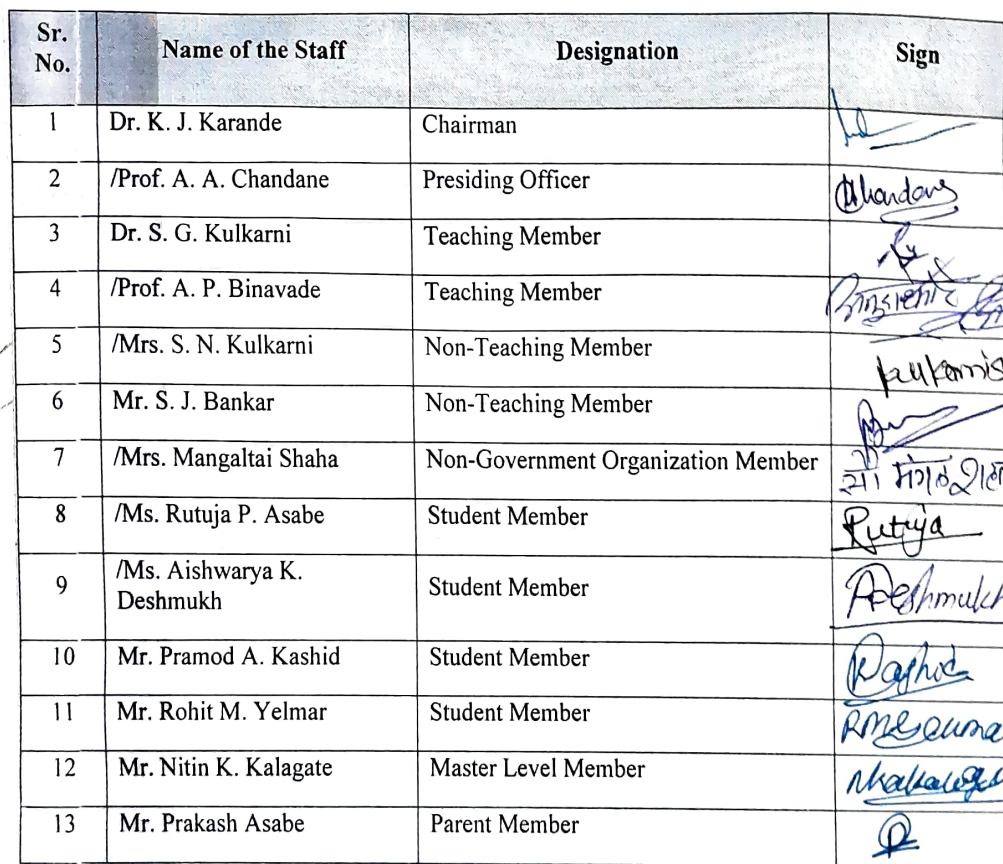 Sr. No. Name of the Staff Designation Sign
1 Dr. K. J. Karande Chairman
2 /Prof. A. A. Chandane Presiding Officer Chandane
3 Dr. S. G. Kulkarni Teaching Member
4 /Prof. A. P. Binavade Teaching Member
5 /Mrs. S. N. Kulkarni Non-Teaching Member
6 Mr. S. J. Bankar Non-Teaching Member
7 /Mrs. Mangaltai Shaha Non-Government Organization Member सौ मंगल शहा
8 /Ms. Rutuja P. Asabe Student Member Rutuja
9 /Ms. Aishwarya K. Deshmukh Student Member ADeshmukh
10 Mr. Pramod A. Kashid Student Member
11 Mr. Rohit M. Yelmar Student Member
12 Mr. Nitin K. Kalagate Master Level Member
13 Mr. Prakash Asabe Parent Member